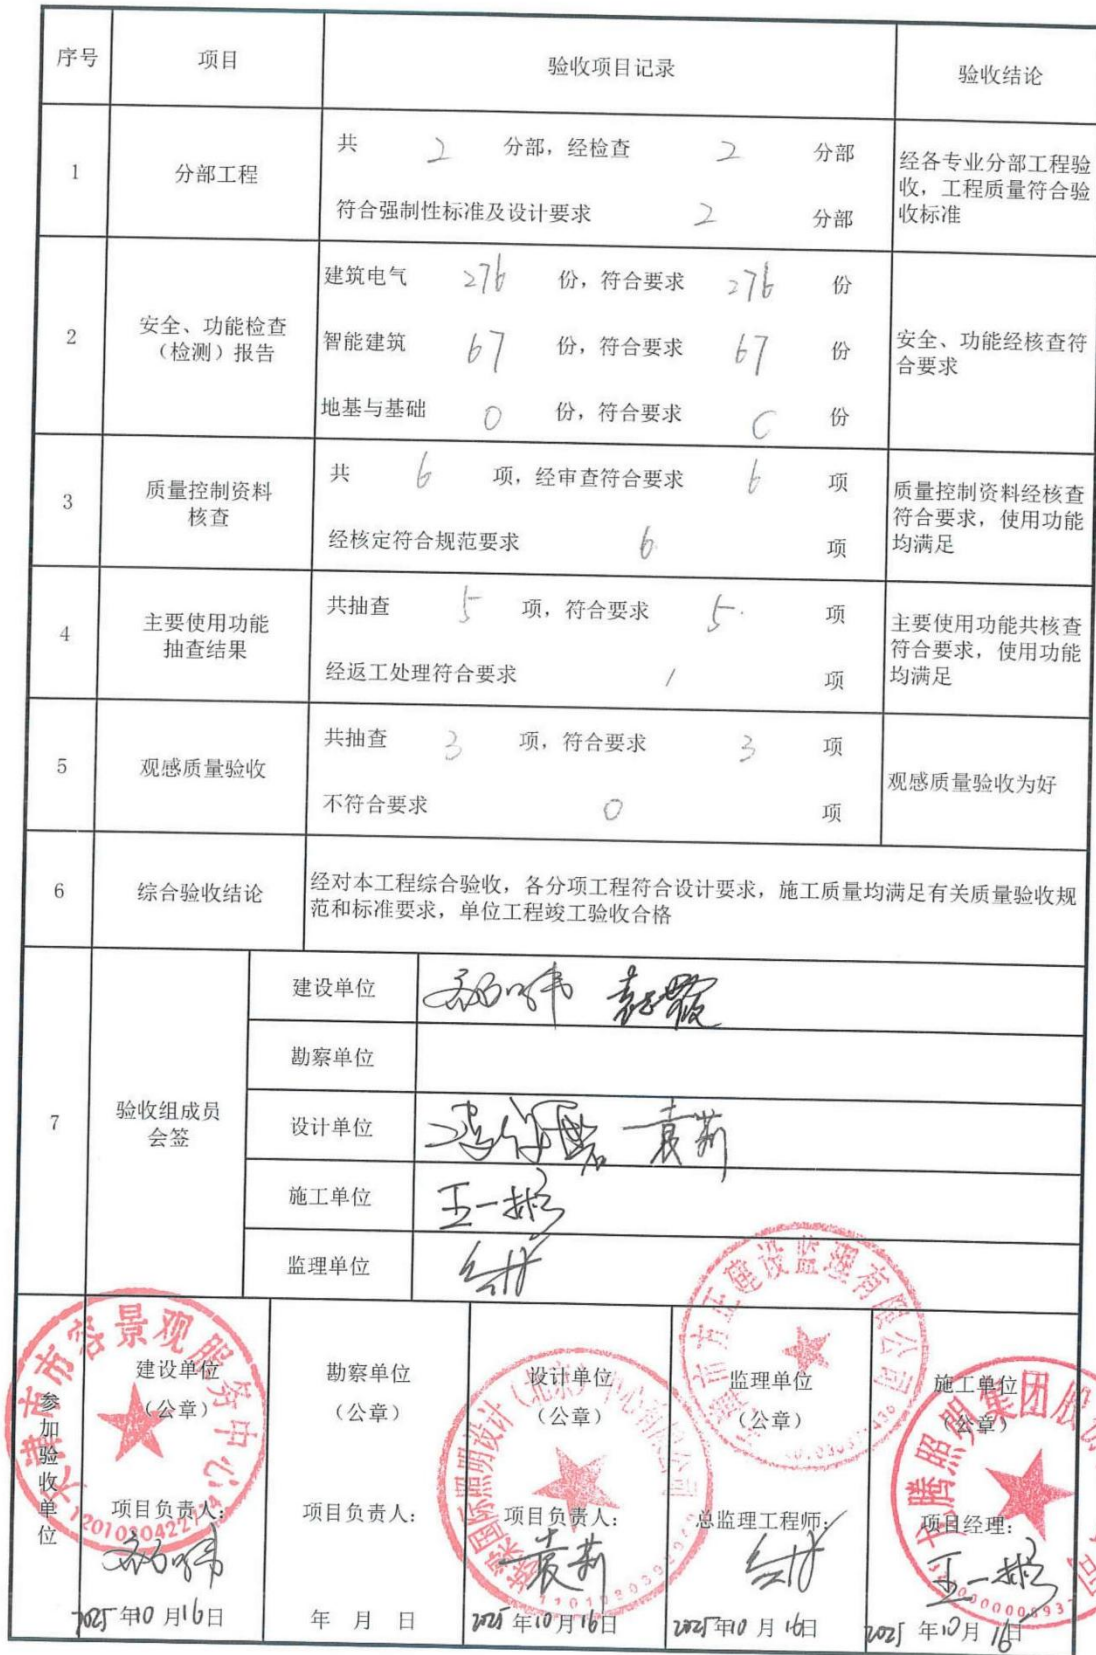 序号 项目 验收项目记录 验收结论
1 分部工程
共 2 分部，经检查 2 分部
符合强制性标准及设计要求 2 分部
经各专业分部工程验
收，工程质量符合验
收标准
2 安全、功能检查
（检测）报告
建筑电气 276 份，符合要求 276 份
智能建筑 67 份，符合要求 67 份
地基与基础 0 份，符合要求 0 份
安全、功能经核查符
合要求
3 质量控制资料
核查
共 6 项，经审查符合要求 6 项
经核定符合规范要求 6 项
质量控制资料经核查
符合要求，使用功能
均满足
4 主要使用功能
抽查结果
共抽查 5 项，符合要求 5 项
经返工处理符合要求 / 项
主要使用功能共核查
符合要求，使用功能
均满足
5 观感质量验收
共抽查 3 项，符合要求 3 项
不符合要求 0 项
观感质量验收为好
6 综合验收结论
经对本工程综合验收，各分项工程符合设计要求，施工质量均满足有关质量验收规
范和标准要求，单位工程竣工验收合格
7 验收组成员
会签
建设单位
勘察单位
设计单位 袁莉
施工单位 王一彬
监理单位
参加验收单位
建设单位
（公章）
项目负责人：
2025年10月16日
天津市市容景观服务中心
勘察单位
（公章）
项目负责人：
年 月 日
设计单位
（公章）
项目负责人：
袁莉
2025年10月16日
国际照明设计（北京）中心有限公司
监理单位
（公章）
总监理工程师：
2025年10月16日
方正建设监理有限公司
施工单位
（公章）
项目经理：
王一彬
2025年10月16日
龙腾照明集团股